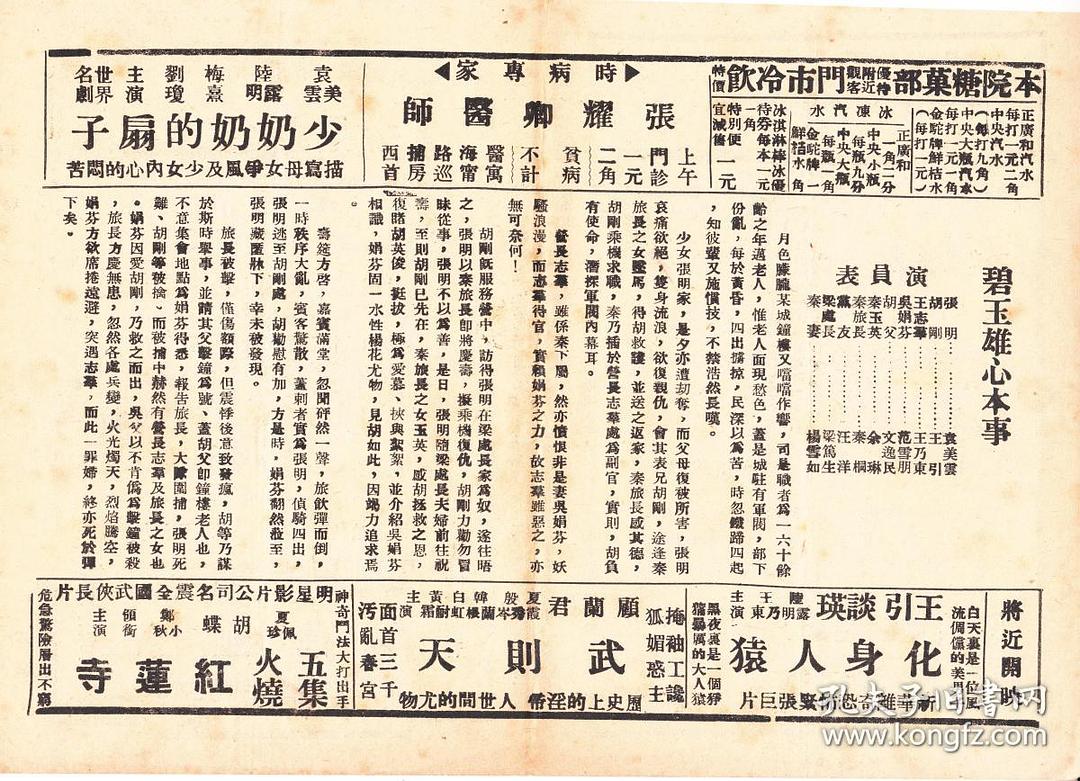 本院糖菓部優待附近觀客門市冷飲特價
正廣和汽水
每打一元二角
中央汽水
（每打九角）
中央大瓶汽水
每打一元一角
金鴕牌鮮桔水
（每打一元）
冰凍汽水
正廣和
一角二分
中央小瓶
每瓶九分
中央大瓶
每瓶一角
金鴕牌
鮮桔水一角
冰淇淋棒冰優
待券每本一元
一角
特別便宜減售一元
◀時病專家▶
張耀卿醫師
上午
門診
一元
二角
貧病
不計
醫寓
海甯
路巡
捕房
西首
袁美雲
陸露明
梅熹
劉瓊
主演
世界名劇
少奶奶的扇子
描寫母女爭風及少女內心的悶苦
碧玉雄心本事
演員表
張明………袁美雲
胡剛………王引
王志羣………王乃東
吳娟芬………范雪朋
胡父………文逸民
秦玉英………余琳
秦旅長………秦桐
黨友………汪洋
梁處長………梁篤生
秦妻………楊雪如
月色朦朧某城鐘樓又噹噹作響，司是職者為一六十餘
齡之年邁老人，惟老人面現愁色，蓋是城駐有軍閥，部下
份亂，每於黃昏，四出擄掠，民深以為苦，時忽鐵蹄四起
，知彼輩又施慣技，不禁浩然長嘆。
少女張明家，是夕亦遭刧奪，而父母復被所害，張明
哀痛欲絕，隻身流浪，欲復親仇，會其表兄胡剛，途逢秦
旅長之女墮馬，得胡救護，並送之返家，秦旅長感其德，
胡剛乘機求職，秦乃插於營長志羣處為副官，實則，胡負
有使命，潛探軍閥內幕耳。
營長志羣，雖係秦下屬，然亦憤恨非是妻吳娟芬，妖
騷浪漫，而志羣得官，實賴娟芬之力，故志羣雖惡之，亦
無可奈何！
胡剛旣服務營中，訪得張明在梁處長家為奴，遂往晤
之，張明以秦旅長卽將慶壽，擬乘機復仇，胡剛力勸勿冒
昧從事，張明不以為善，是日，張明隨梁處長夫婦前往祝
壽，至則胡剛已先在，秦旅長之女玉英，感胡拯救之恩，
復睹胡英俊，挺拔，極為愛慕，挾與絮絮，並介紹吳娟芬
相識，娟芬固一水性楊花尤物，見胡如此，因竭力追求焉
。
壽筵方啓，嘉賓滿堂，忽聞砰然一聲，旅飲彈而倒，
一時秩序大亂，賓客驚散，蓋刺者實為張明，偵騎四出，
張明逃至胡剛處，胡勸慰有加，方是時，娟芬翩然蒞至，
張明藏匿牀下，幸未被發現。
旅長被擊，僅傷額際，但云震悸後意致發瘋，胡等乃謀
於斯時舉事，並請其父擊鐘為號、蓋胡父卽鐘樓老人也，
不意集會地點為娟芬得悉，報告旅長，大隊圍捕，張明死
難、胡剛等被擒、而被捕中赫然有營長志羣及旅長之女也
。娟芬因愛胡剛，乃救之而出，吳父以不肯偽為擊鐘被殺
，旅長方慶無患，忽然各處兵變，火光燭天，烈焰騰空，
娟芬方欲席捲遠遁，突遇志羣，而此一罪婦，終亦死於彈
下矣。
將近開映
白天裏是一位風
流倜儻的美男
黑夜裏是一個猙
獰暴厲的大人猿
王引 談瑛
陸露明 王乃東 主演
化身人猿
新華離奇恐怖緊張巨片
掩袖工讒
狐媚惑主
顧蘭君
夏霞 殷秀岑 韓蘭根 白虹 黃耐霜 主演
武則天
面首三千
汚亂春宮
歷史上的淫帝 人世間的尤物
明星影片公司名震全國武俠長片
神奇鬥法大打出手
夏佩珍
胡蝶
鄭小秋
領銜主演
五集
火燒紅蓮寺
危急驚險層出不窮
孔夫子旧书网
www.kongfz.com